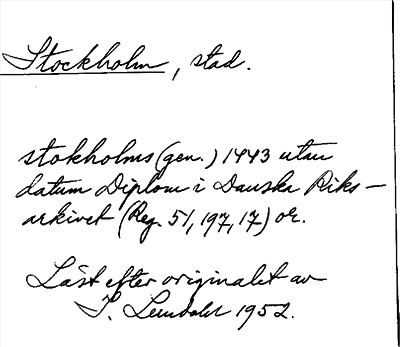 Stockholm, stad.
stokholms (gen.) 1443 utan
datum Diplom i Danska Riks-
arkivet (Reg. 51, 197, 17) or.
Läst efter originalet av
I. Lundahl 1952.